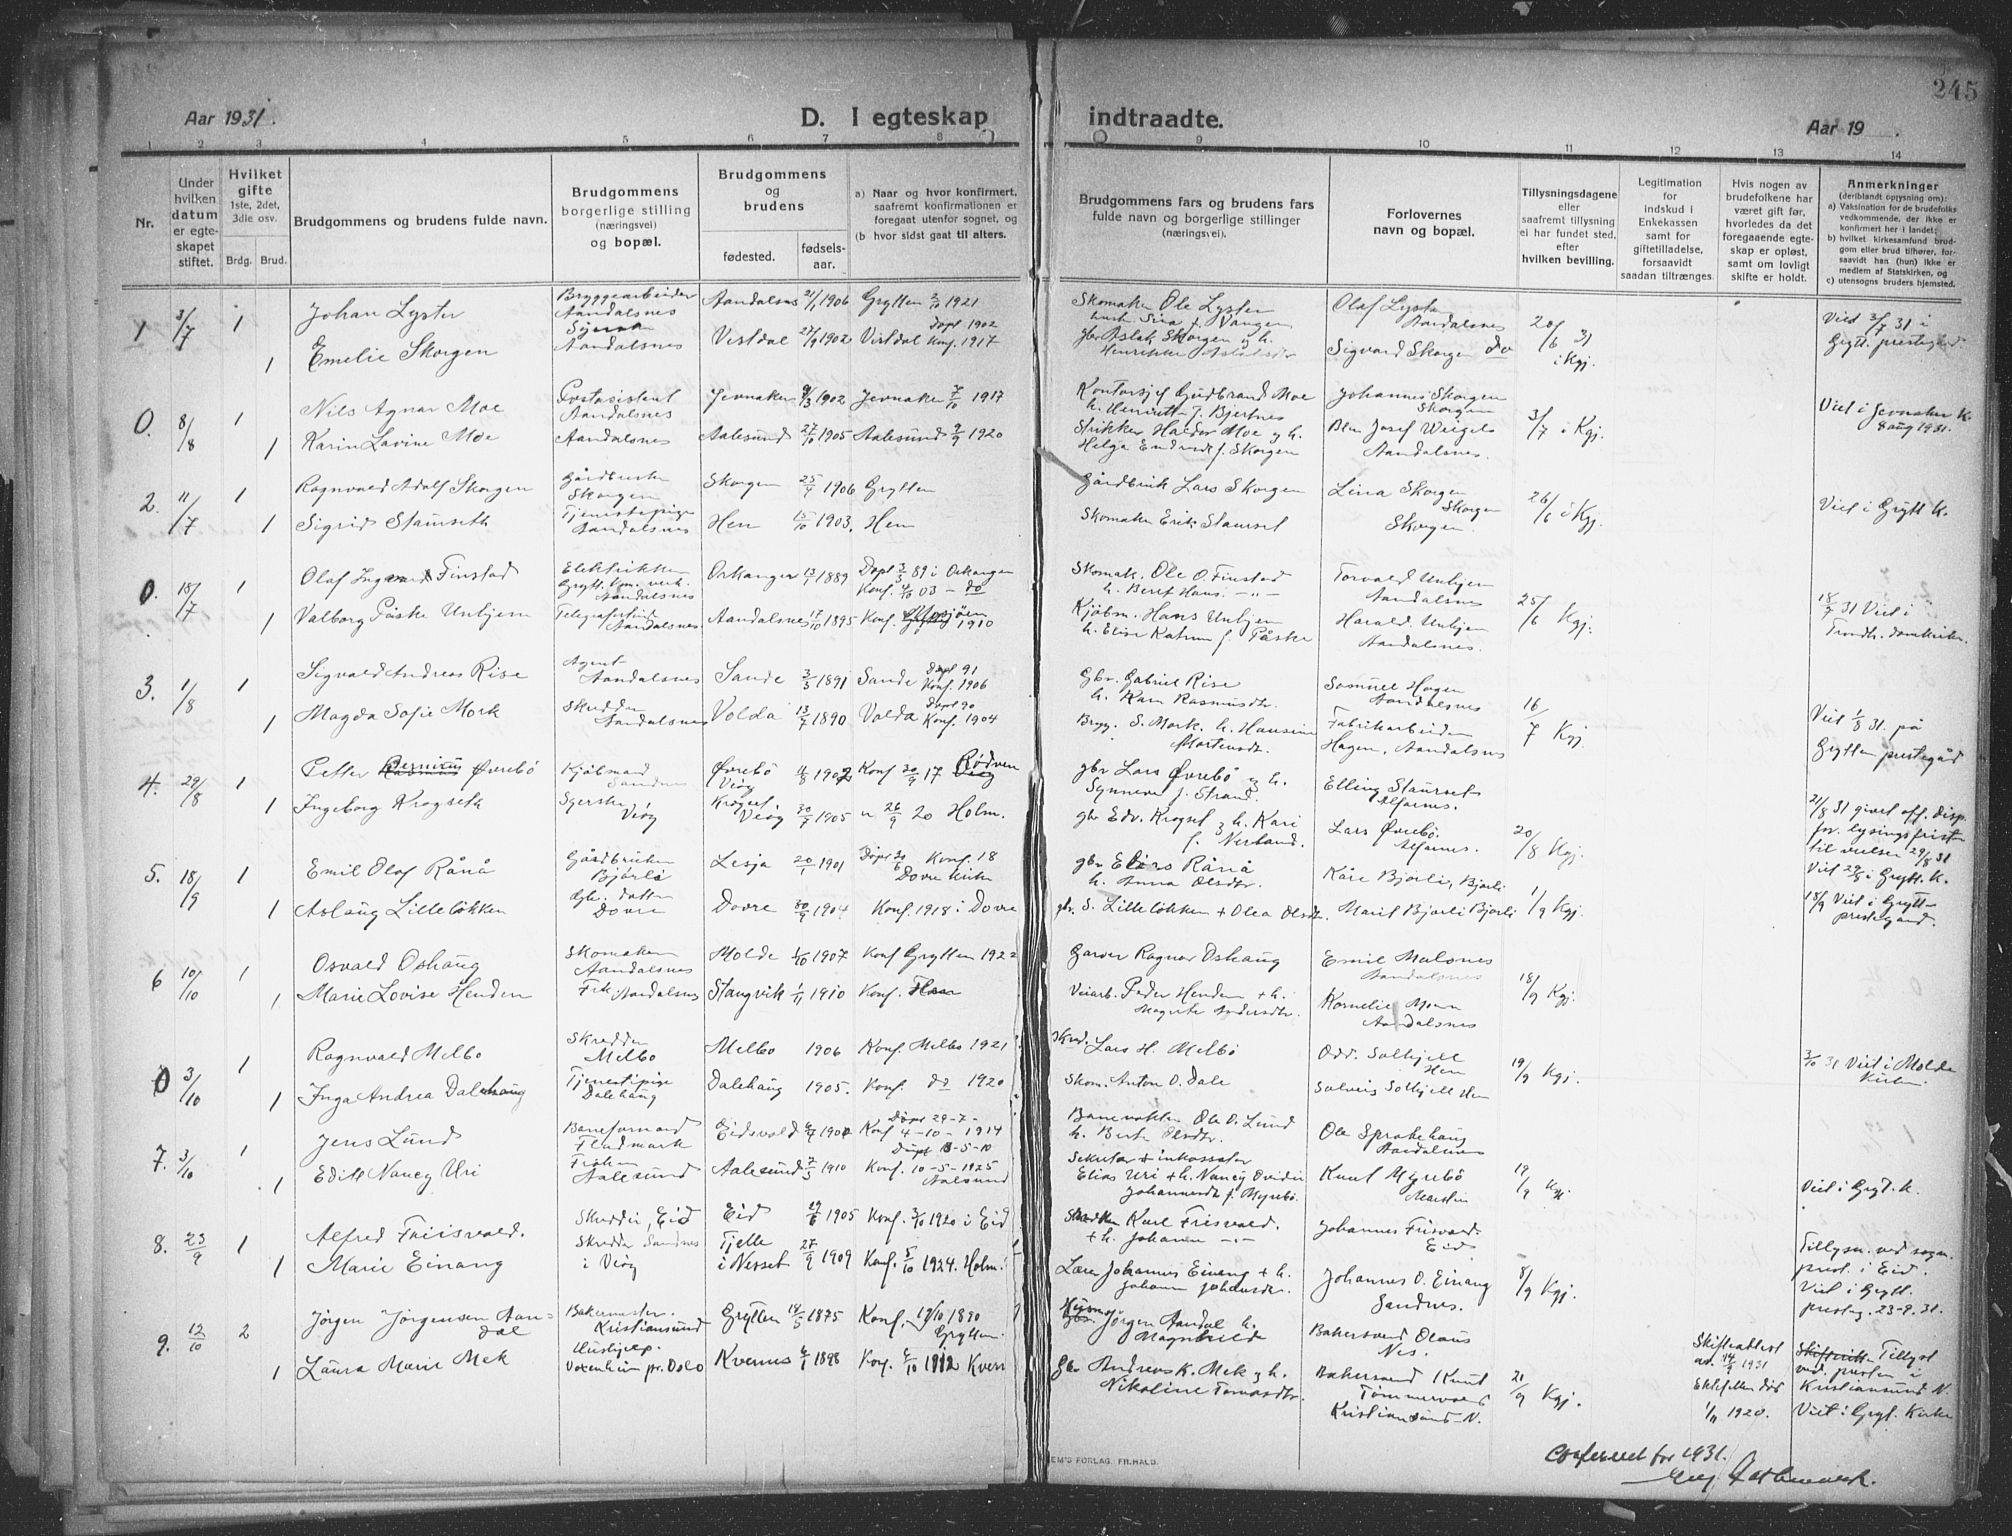 245
Aar 1931.
D. I egteskap indtraadte.
Aar 19 .
1 2 3 4 5 6 7 8 9 10 11 12 13 14
Nr.
Under hvilken datum er egteskapet stiftet.
Hvilket gifte 1ste, 2det, 3die osv.
Brdg. Brud.
Brudgommens og brudens fulde navn.
Brudgommens borgerlige stilling (næringsvei) og bopæl.
Brudgommens og brudens
fødested.
fødselsaar.
a) Naar og hvor konfirmert, saafremt konfirmationen er foregaat utenfor sognet, og
(b hvor sidst gaat til alters.
Brudgommens fars og brudens fars fulde navn og borgerlige stillinger (næringsvei).
Forlovernes navn og bopæl.
Tillysningsdagene eller saafremt tillysning ei har fundet sted, efter hvilken bevilling.
Legitimation for indskud i Enkekassen samt for giftetilladelse, forsaavidt saadan tiltrænges.
Hvis nogen av brudefolkene har været gift før, hvorledes da det foregaaende egteskap er opløst, samt om lovligt skifte er holdt.
Anmerkninger (deriblandt oplysning om):
a) Vaksination for de brudefolks vedkommende, der ikke er konfirmert her i landet;
b) hvilket kirkesamfund brudgom eller brud tilhører, forsaavidt han (hun) ikke er medlem af Statskirken, og
c) utensogns bruders hjemsted.
1 3/7 1 Johan Lyster Bryggearbeider Aandalsnes Aandalsnes 21/1 1906 Grytten 2/10 1921 Skomaker Ole Lyster Olaf Lyster Aandalsnes 20/6 31 i Kgj. Viet 3/7 31 i
1 Emelie Skorgen Aandalsnes Vistdal 27/9 1902 Døpt 1902 Vistdal Konf. 1917 gbr Aslak Skorgen g h. Sigvard Skorgen do Grytt. prestegård
0. 8/8 1 Nils Agnar Moe Postassistent Aandalsnes Jevnaker 9/3 1902 Jevnaker 7/10 1917 Kontorsjef Gudbrand Moe h. Henriette f. Bjertnes Johannes Skorgen Skorgen 3/7 i Kgj. Viet i Jevnaker K. 8 aug 1931.
1 Karin Lovine Moe Aandalsnes Aalesund 27/10 1905 Aalesund 9/9 1920 Strikker Haldor Moe g h. Helga Endresdt f. Skorgen Josef Weigels Aandalsnes.
2. 11/7 1 Ragnvald Adolf Skorgen Gårdbruker Skorgen Skorgen 25/9 1906 Grytten Gårdbruk Lars Skorgen Lina Skorgen Skorgen 26/6 i Kgj. Viet i Grytt K.
1 Sigrid Stamseth Tjenestepige Aandalsnes Hen 15/10 1903. Hen Skomaker Erik Stamset Skorgen.
0. 18/7 1 Olaf Ingvard Finstad Elektriker Grytt. kom. verk. Aandalsnes Orkanger 13/1 1889 Døpt 3/3 89 i Orkanger Konf. 4/10 03 - do Skomak. Ole O. Finstad h. Beret Hans. - " - Torvald Unhjem Aandalsnes 25/6 Kgj. 18/7 31 Viet i
1 Valborg Påske Unhjem Aandalsnes Aandalsnes 17/10 1895 Konf. 1910 Kjøbm. Hans Unhjem h. Elise Katrine f. Påske Harald Unhjem Aandalsnes. Trondh. domkirke.
3. 1/8 1 Sigvald Andreas Rise Agent Aandalsnes Sande 3/5 1891 Sande Døpt 91 Konf. 1906 Gbr. Gabriel Rise h. Karn Rasmusdtr. Samuel Hagen Aandalsnes 16/7 Kgj. Viet 1/8 31. på
1 Magda Sofie Mork Skredder Aandalsnes Volda 13/7 1890 Volda Døpt 90 Konf. 1904 Brygg. S. Mork, h. Hansine Mortensdt. Fabrikarbeider Hagen, Aandalsnes Grytten prestegård
4. 29/8 1 Petter Bernius Øvrebø Kjøbmand Sandnes Øvrebø Veøy 11/8 1902 Konf 30/9 17 Rødven gbr Lars Øvrebø g h. Synneve f. Strand. Elling Staurset Alfarnes. 20/8 Kgj. 21/8 31 givet off. disp. for lysingsfristen til vielsen 29/8 31
1 Ingeborg Krogseth Syerske Veøy Krogset, Veøy 30/7 1905 " 26/9 20 Holm. gbr Edv. Krogset g h. Kari f. Nerland. Lars Øvrebø. Alfarnes. Viet 29/8 i Grytt. K.
5. 18/9 1 Emil Olaf Rånå Gårdbruker Bjorli Lesja 20/1 1901 Konf. 18 Dovre kirke gbr Elias Rånå h. Anna Olsdtr. Kåre Bjorli, Bjorli 1/9 Kgj. 18/9 Viet i Grytt-
1 Aslaug Lilleløkken Gbr. datter Dovre Dovre 30/9 1904 Konf. 1918 i Dovre gbr. S. Lilleløkken + Olea Olsdt. Marit Bjorli Bjorli prestegaard.
6 10/10 1 Osvald Oshaug Skomaker Aandalsnes Molde 1/10 1907 Konf Grytten 1922 Garver Ragnar Oshaug Emil Malsnes Aandalsnes 18/9 Kgj.
1 Marie Lovise Henden Frk. Aandalsnes Stangvik 1/11 1910 Konf. Veiarb. Peder Henden + h. Magrete Andersdtr. Kornelie Aandalsnes
0 3/10 1 Ragnvald Melbø Skredder Melbø Melbø 1906 Konf. Melbø 1921 Skred. Lars H. Melbø Odd. Solhjell Hen 19/9 Kgj. 3/10 31 Viet i Molde Kirke.
1 Inga Andrea Dalehaug Tjenestepige Dalehaug Dalehaug 1905. Konf. do 1920 Skom. Anton O. Dale Solveig Solhjell Hen
7. 3/10 1 Jens Lund Baneformand Fladmark Eidsvold Døpt 29-7- Konf 4-10-1914 Banevokter Ole O. Lund h. Berte Olsdtr. Ole Sprakehaug Aandalsnes 19/9 Kgj.
1 Edith Nancy Uri Frøken Aalesund Aalesund 2/3 1910 Konf. 10-5-1925 Aalesund Sekretær + inkassator Elias Uri + h. Nancy Johannesdt f. Myrebø. Knut Myrebø Viet i Gryt. k.
8. 23/9 1 Alfred Friisvold. Skredder, Eid Eid 29/6 1905 Konf. 3/10 1920 i Eid Karl Frisvold. + h. Johanne - " - Johannes Frisvold Eid 8/9 Kgj. Tillysn. ved sogn. prest. i Eid.
1 Marie Einang Skredder Sandnes i Veøy Tjelle i Nesset 27/9 1909 Konf. 5/10 1924. Holm. Lærer Johannes Einang + h. Johanne Johansdtr. Johannes O. Einang Sandnes. Viet i Grytt. presteg. 23-9. 31.
9. 12/10 2 Jørgen Jørgensen Aandal Bakermester. Kristiansund Grytten 14/5 1875 Konf. 19/10 1890 Grytten. Jørgen Aandal h. Magnhilde Bakersvend Olaus Nes. 21/9 Kgj. Skifteattest av 14/9 1931 Tillyst ved presten i
1 Laura Marie Mek Hushjelp. Voxenheim pr. Oslo Kvernes 6/1 1898 Konf. 6/10 1912 Kvern Gbr Andreas K. Mek g h. Nikoline Tomasdtr. Bakersvend Knut Tømmervold Kristiansund-N. Ektefellen død 1/11 1920. Kristiansund N. Viet i Gryt. Kirke
EM'S FORLAG. FR. HALD.
Conferert for 1931.